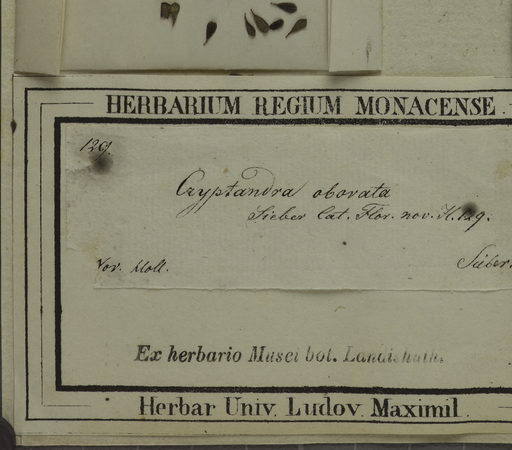 HERBARIUM REGIUM MONACENSE
129.
Cryptandra obovata
Sieber Cat. Flor. nov. H. 129.
Nov. Holl.
Sieber.
Ex herbario Musei bot. Landishuth.
Herbar Univ. Ludov. Maximil.